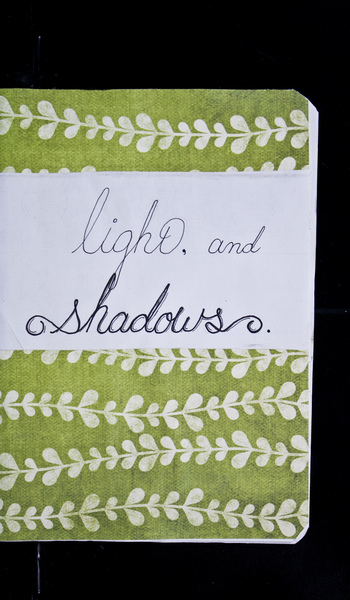 light, and
shadows.